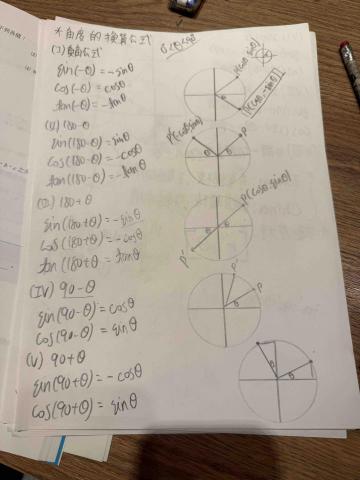 角度的換算公式
(I) 負角公式
sin(-θ) = -sinθ
cos(-θ) = cosθ
tan(-θ) = -tanθ
(II) 180-θ
sin(180-θ) = sinθ
cos(180-θ) = -cosθ
tan(180-θ) = -tanθ
(III) 180+θ
sin(180+θ) = -sinθ
cos(180+θ) = -cosθ
tan(180+θ = tanθ
(IV) 90-θ
sin(90-θ) = cosθ
cos(90-θ) = sinθ
(V) 90+θ
sin(90+θ) = -cosθ
cos(90+θ) = sinθ
P
θ
P(cosθ, sinθ)
θ
P'
P'
P
θ
θ